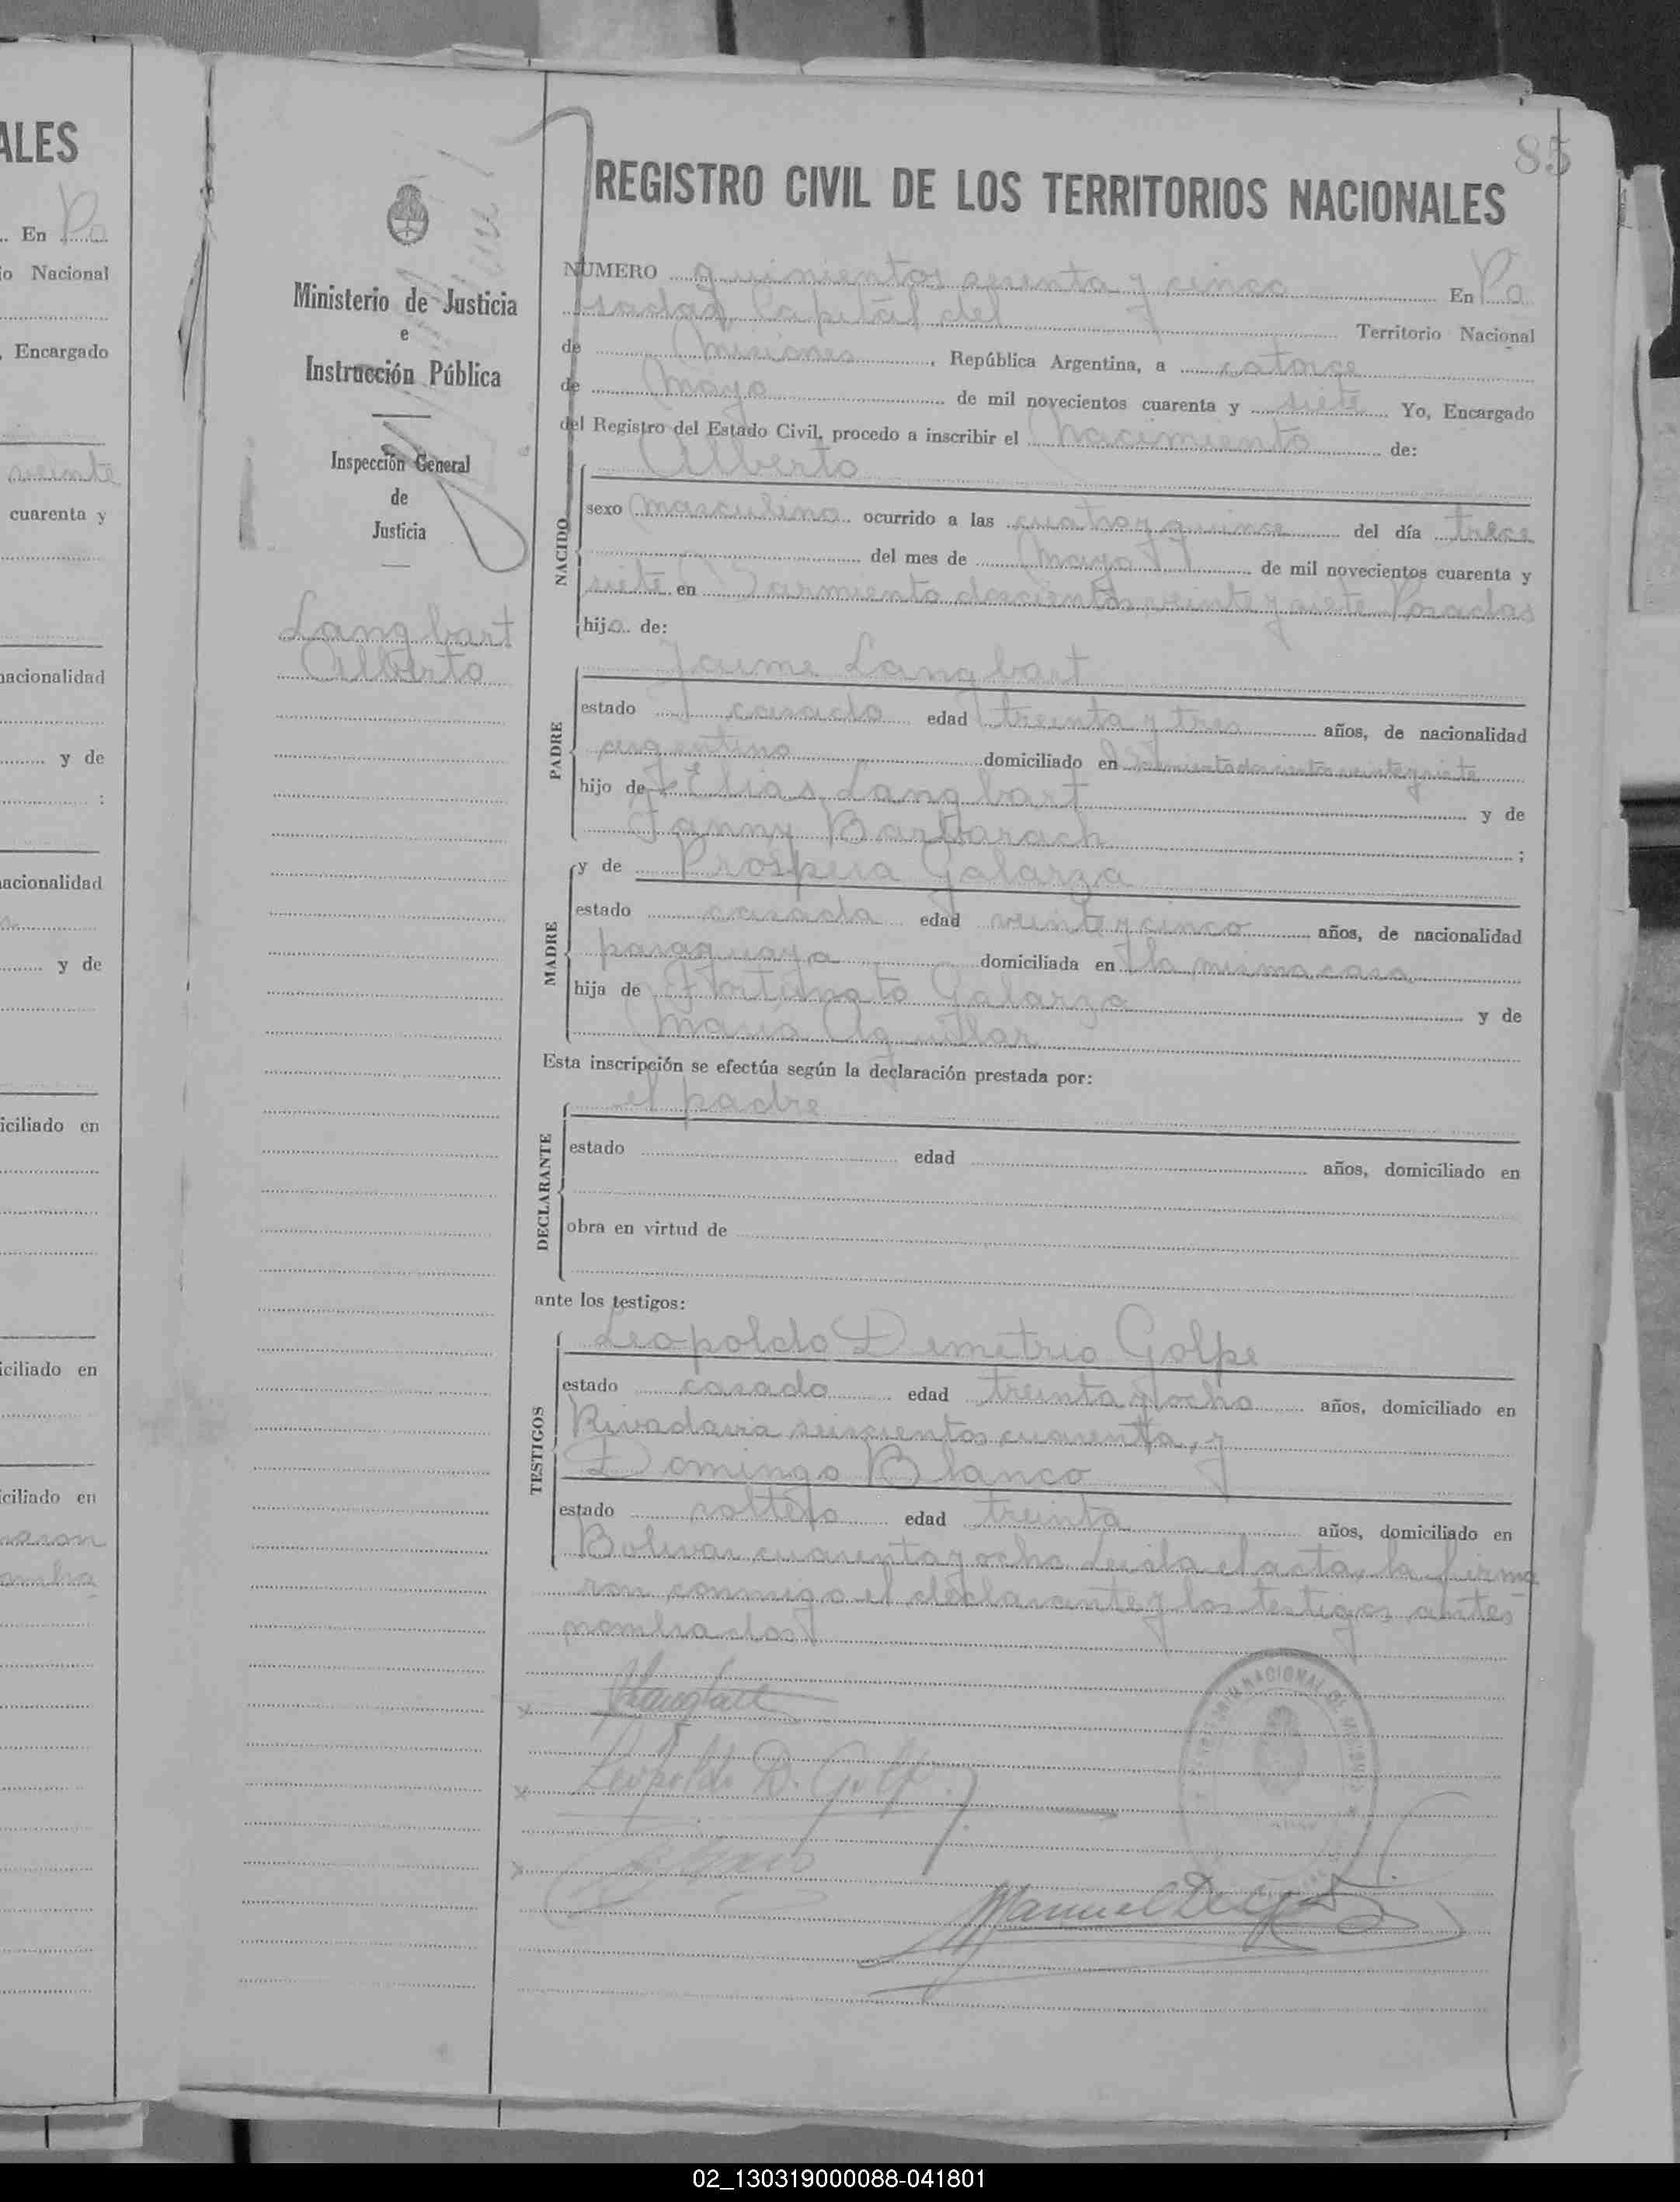 ALES
.. En Po
io Nacional
, Encargado
veinte
cuarenta y
nacionalidad
y de
nacionalidad
y de
iciliado en
iciliado en
ciliado en
85
REGISTRO CIVIL DE LOS TERRITORIOS NACIONALES
Ministerio de Justicia
e
Instrucción Pública
Inspección General
de
Justicia
Langbart
Alberto
NUMERO quinientos sesenta y cinco En Po
sadas Capital del Territorio Nacional
de Misiones, República Argentina, a catorce
de Mayo de mil novecientos cuarenta y siete Yo, Encargado
del Registro del Estado Civil, procedo a inscribir el nacimiento de:
Alberto
NACIDO
sexo masculino ocurrido a las cuatro y quince del día trece
del mes de Mayo de mil novecientos cuarenta y
siete en Sarmiento doscientos veinte y siete Posadas
hijo de:
Jaime Langbart
PADRE
estado casado edad treinta y tres años, de nacionalidad
argentino domiciliado en Sarmiento doscientos veinte y siete
hijo de Elias Langbart y de
Fanny Barbarach ;
MADRE
y de Próspera Galarza
estado casada edad veinte y cinco años, de nacionalidad
paraguaya domiciliada en la misma casa
hija de Fortunato Galarza y de
María Aguilar
Esta inscripción se efectúa según la declaración prestada por:
el padre
DECLARANTE
estado edad años, domiciliado en
obra en virtud de
ante los testigos:
Leopoldo Demetrio Golpe
TESTIGOS
estado casado edad treinta y ocho años, domiciliado en
Rivadavia seiscientos cuarenta, y
Domingo Blanco
estado soltero edad treinta años, domiciliado en
Bolivar cuarenta y ocho. Leida el acta, la firma
ron conmigo el declarante y los testigos antes
nombrados
Langbart
Leopoldo D. Golpe
TERRITORIO NACIONAL DE MISIONES
Manuel
02_130319000088-041801